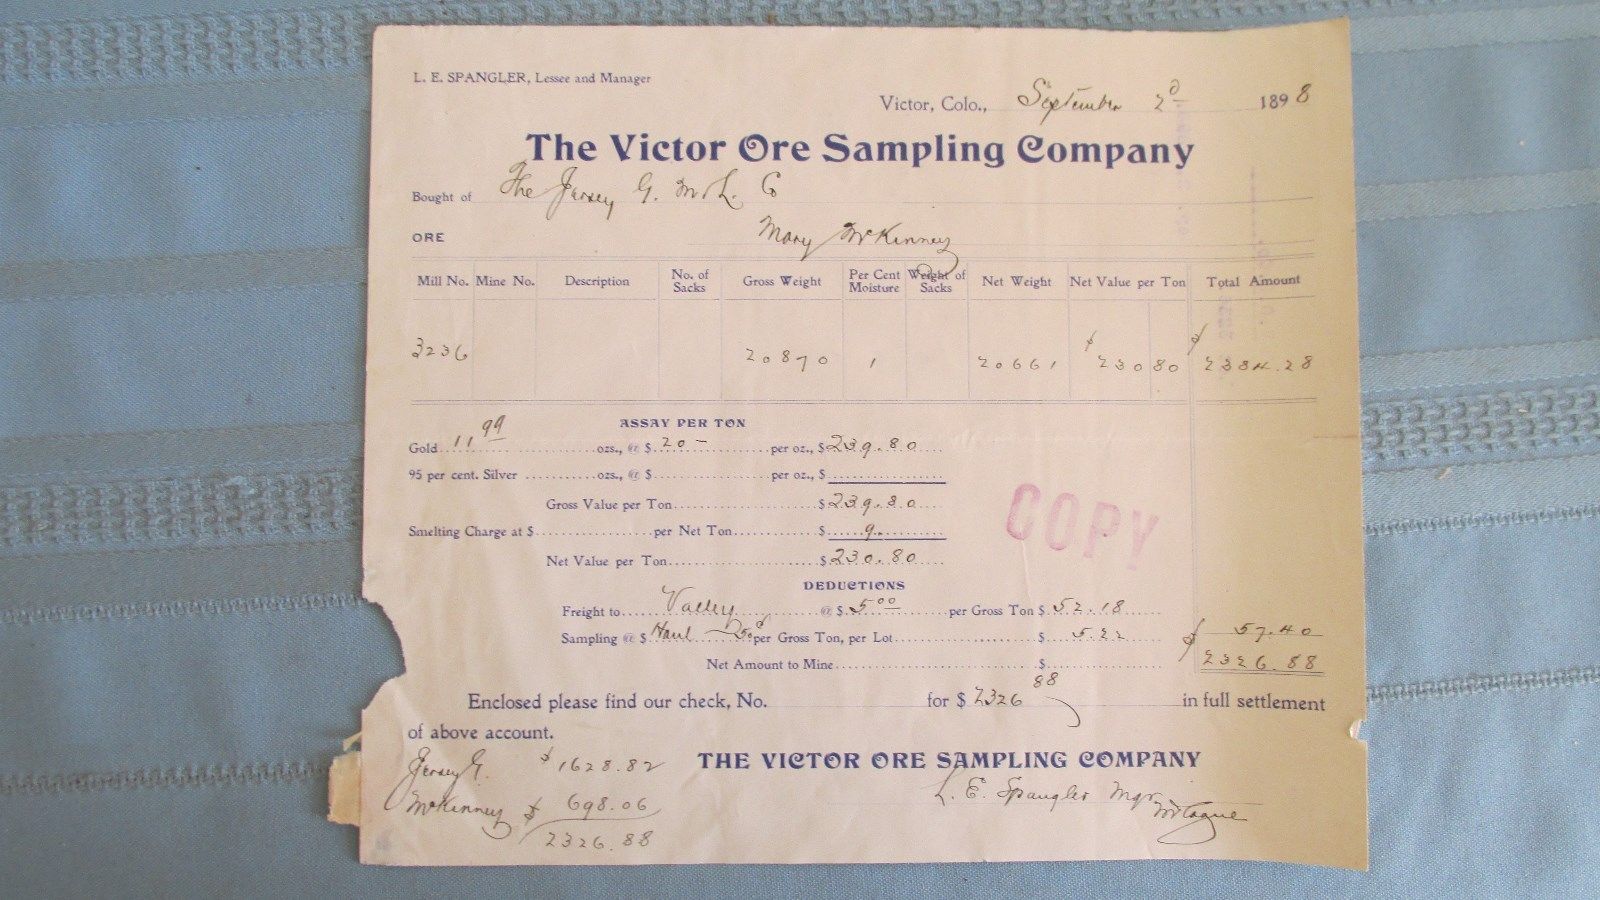 L. E. SPANGLER, Lessee and Manager
Victor, Colo., September 2d 1898
The Victor Ore Sampling Company
Bought of The Jersey G. M. & L. Co
ORE Mary McKinney
Mill No. Mine No. Description No. of Sacks Gross Weight Per Cent Moisture Weight of Sacks Net Weight Net Value per Ton Total Amount
3236 20870 1 20661 $230 80 $2384.28
ASSAY PER TON
Gold 11 99 ozs., @ $ 20 – per oz., $ 239.80
95 per cent. Silver ozs., @ $ per oz., $
Gross Value per Ton $ 239.80
Smelting Charge at $ per Net Ton $ 9.
Net Value per Ton $ 230.80
COPY
DEDUCTIONS
Freight to Valley @ $ 5 00 per Gross Ton $ 52.18
Sampling @ $ Haul 50c per Gross Ton, per Lot $ 5.22 $ 57.40
Net Amount to Mine $ 2326.88
Enclosed please find our check, No. for $ 2326 88 in full settlement
of above account.
Jersey G. $1628.82 THE VICTOR ORE SAMPLING COMPANY
McKinney $ 698.06 L. E. Spangler Mgr
2326.88